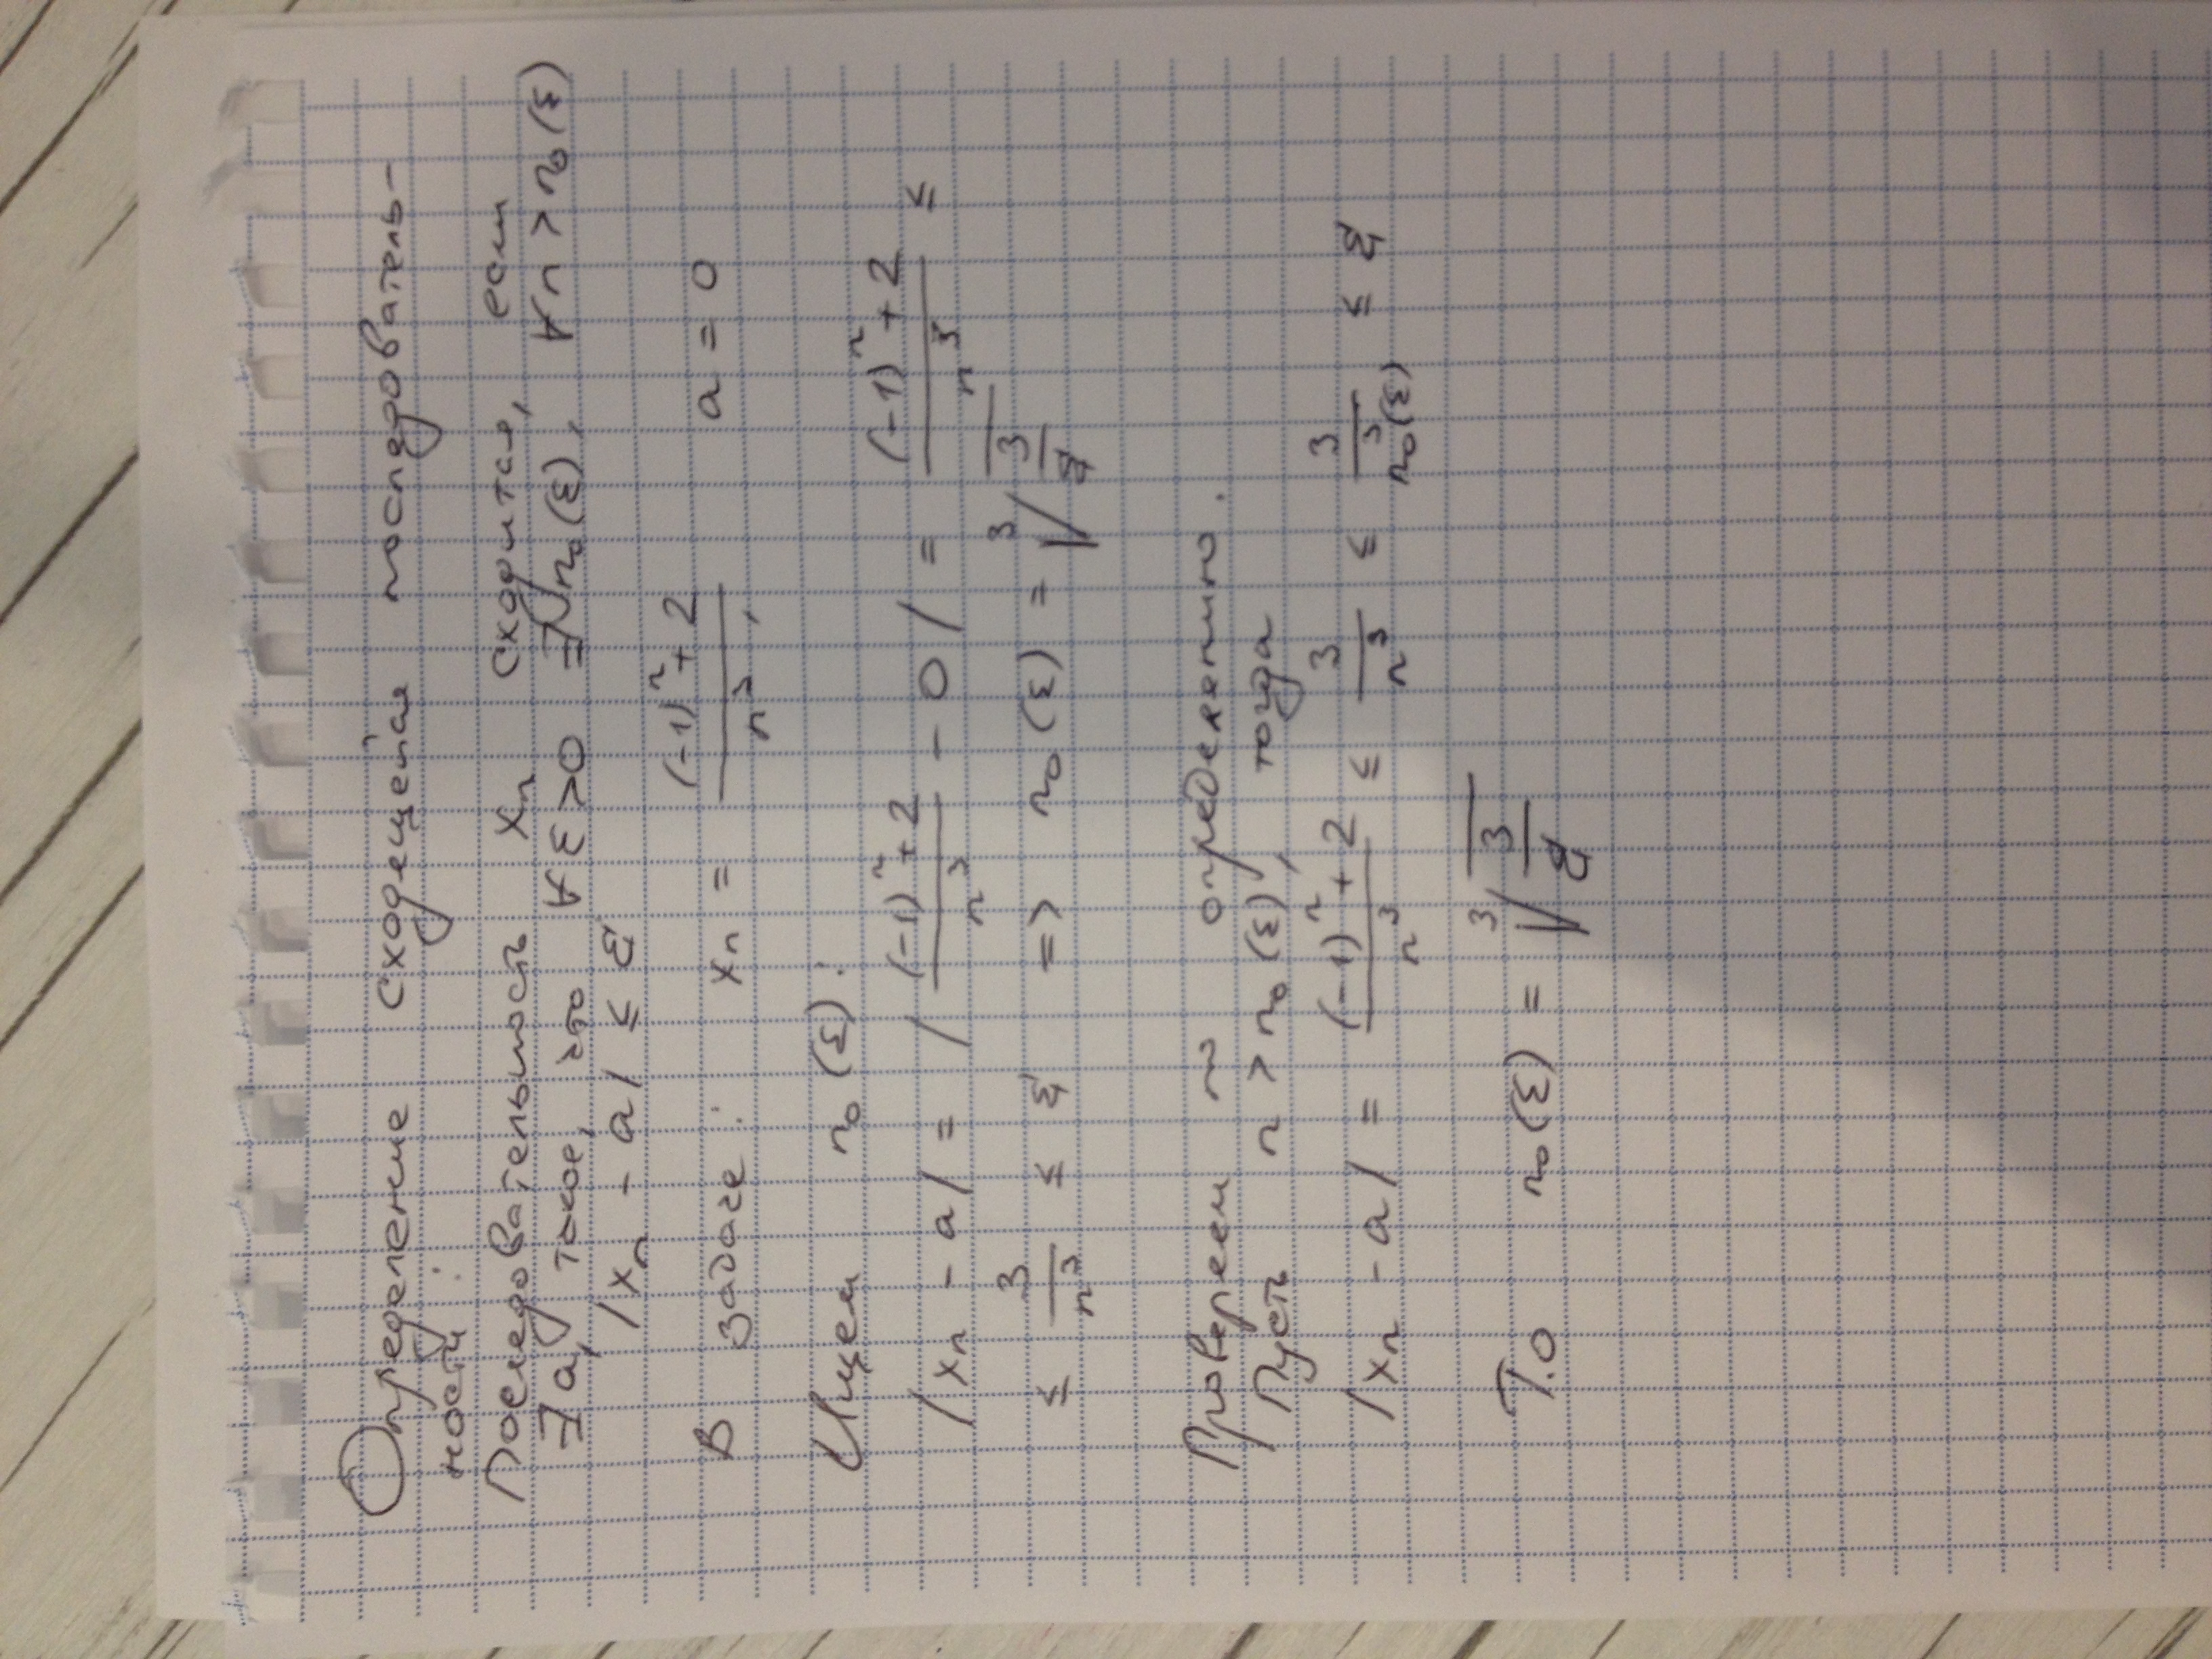 Определение сходещейся последователь-
ности:
Последовательность xₙ сходится, если
∃ a, такое, что ∀ε >0 ∃ n₀(ε), ∀n > n₀(ε)
|xₙ - a| ≤ ε
В задаче: xₙ = ((-1)ⁿ + 2)/n³, a = 0
Ищем n₀(ε):
|xₙ - a| = |((-1)ⁿ + 2)/n³ - 0| = ((-1)ⁿ + 2)/n³ ≤
≤ 3/n³ ≤ ε => n₀(ε) = ∛(3/ε)
Проверяем по определению.
Пусть n > n₀(ε), тогда
|xₙ - a| = ((-1)ⁿ + 2)/n³ ≤ 3/n³ ≤ 3/n₀³(ε) ≤ ε
Т.о n₀(ε) = ∛(3/ε)